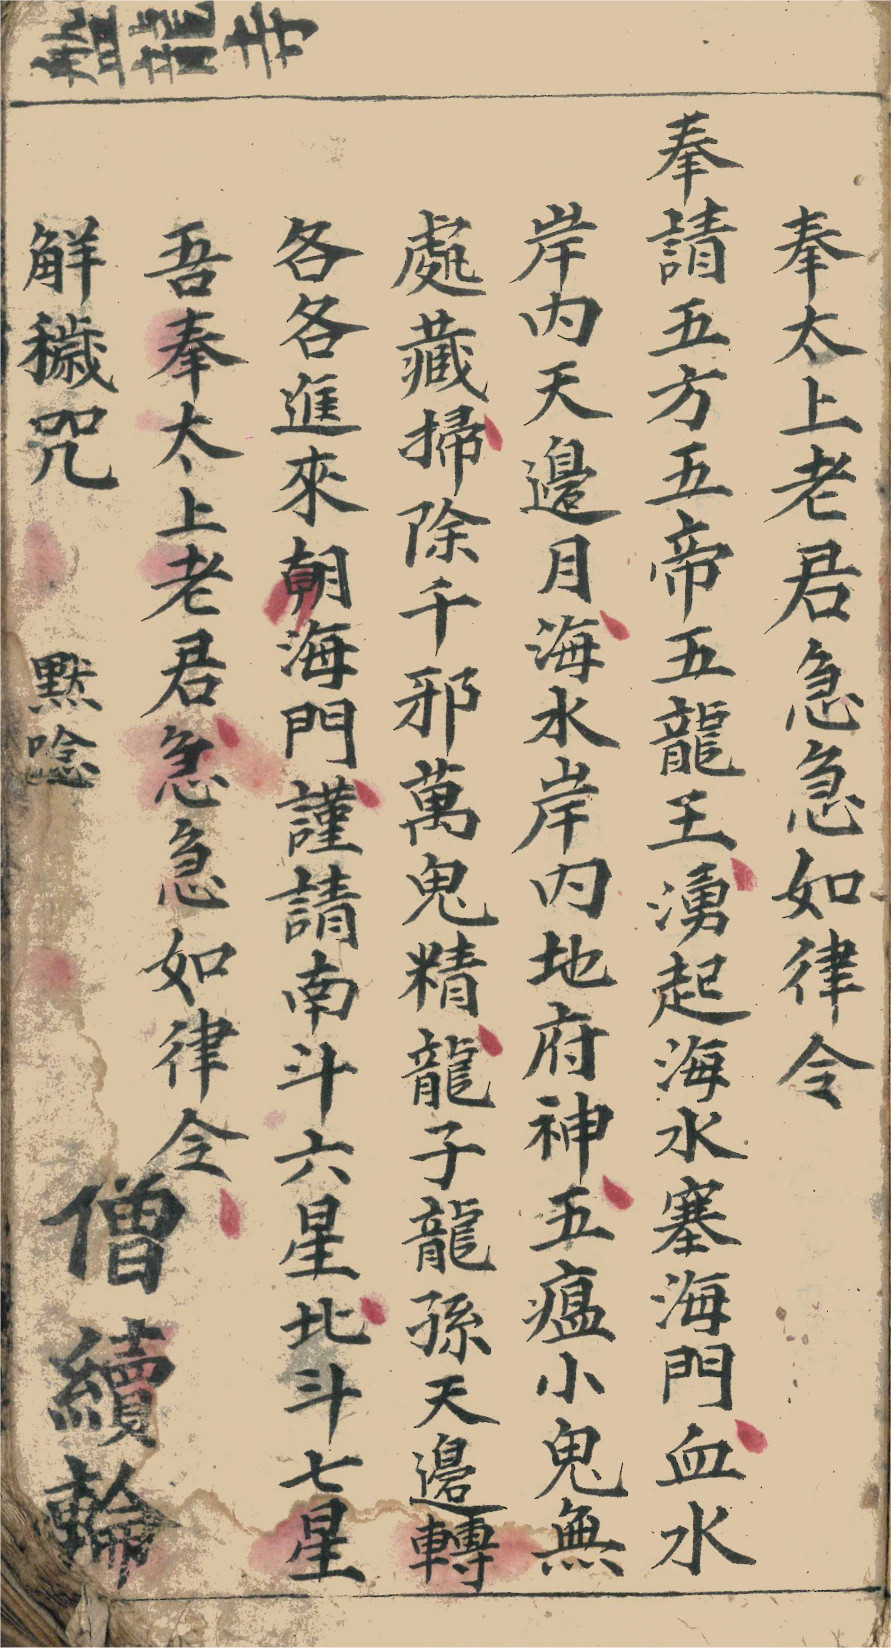 奉太上老君急急如律令
奉請五方五帝五龍王湧起海水塞海門血水
岸内天邉月海水岸内地府神五瘟小鬼無
處藏掃除千邪萬鬼精龍子龍孫天邉轉
各各進來朝海門謹請南斗六星北斗七星
吾奉太上老君急急如律令
解穢咒 默唸
僧續輪
盤龍寺